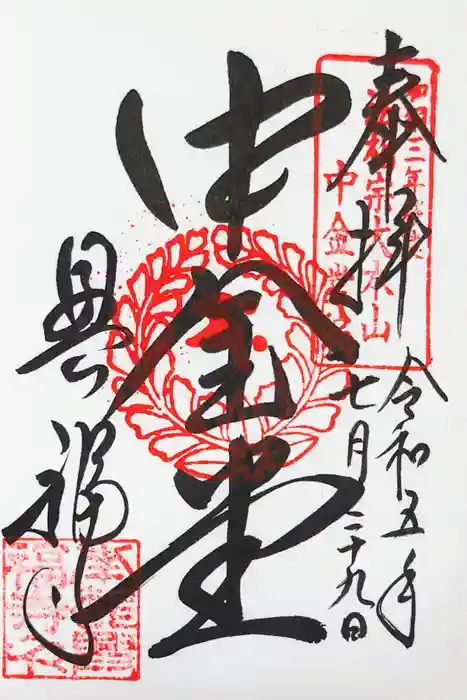 奉拝
令和五年
七月二十九日
中金堂
興福寺
法相宗大本山
中金堂